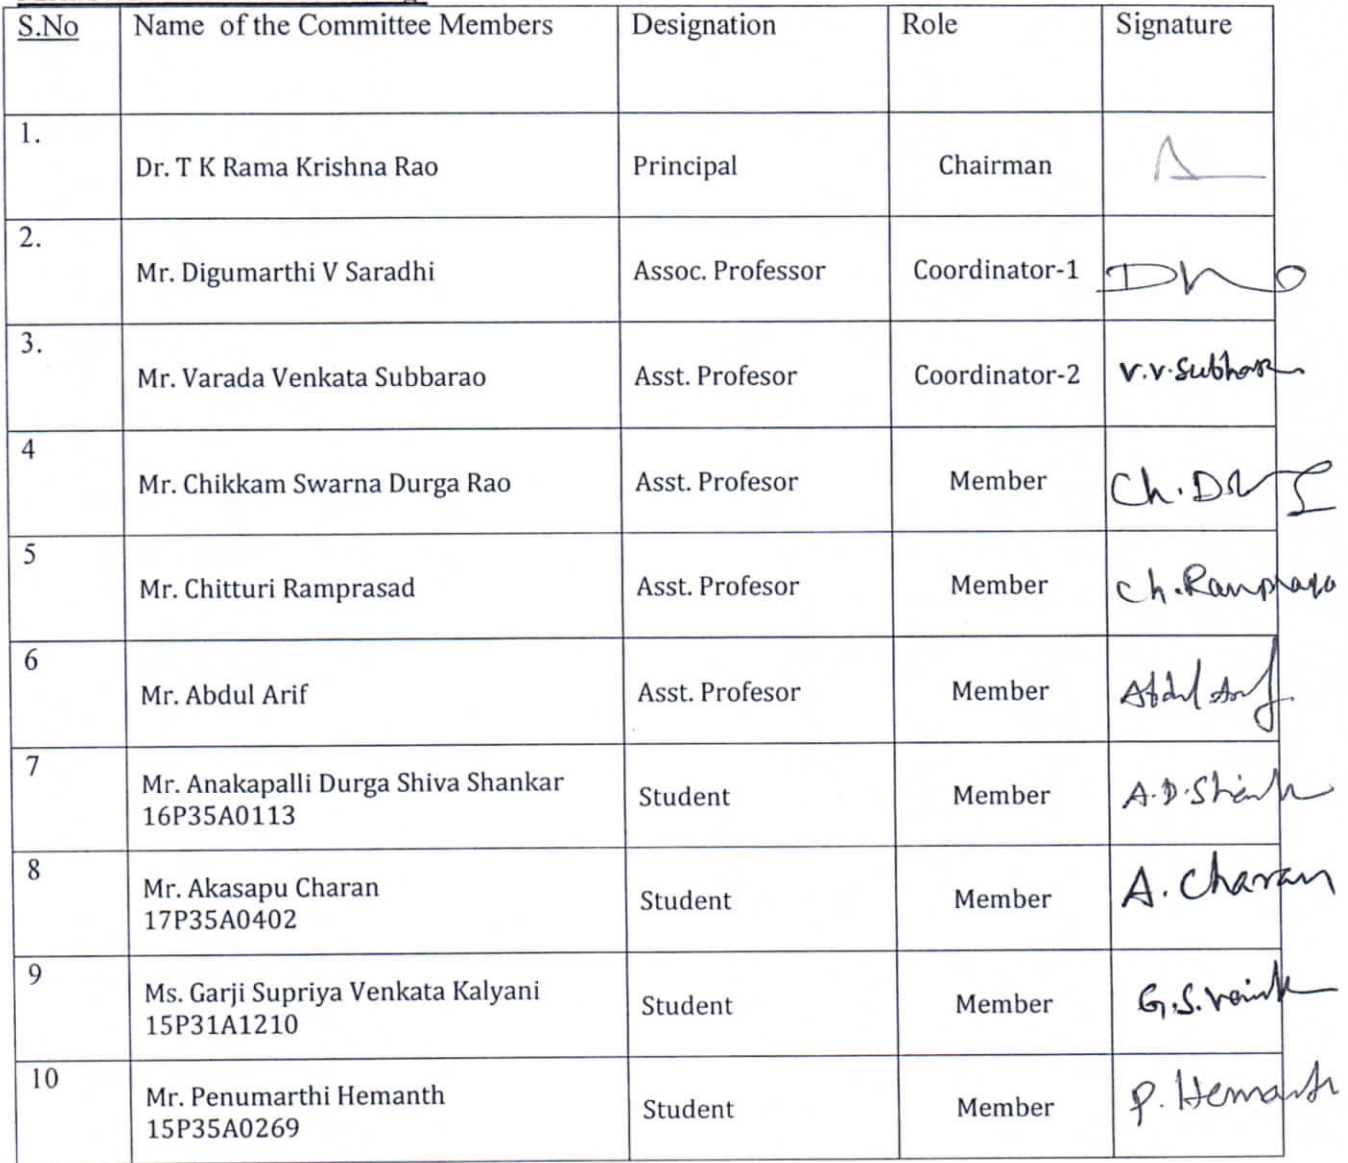 S.No Name of the Committee Members Designation Role Signature
1. Dr. T K Rama Krishna Rao Principal Chairman
2. Mr. Digumarthi V Saradhi Assoc. Professor Coordinator-1
3. Mr. Varada Venkata Subbarao Asst. Profesor Coordinator-2 V.V.Subbarao
4 Mr. Chikkam Swarna Durga Rao Asst. Profesor Member Ch.
5 Mr. Chitturi Ramprasad Asst. Profesor Member Ch.Ramprasad
6 Mr. Abdul Arif Asst. Profesor Member Abdul Arif
7 Mr. Anakapalli Durga Shiva Shankar Student Member A.D.Shank
16P35A0113
8 Mr. Akasapu Charan Student Member A. Charan
17P35A0402
9 Ms. Garji Supriya Venkata Kalyani Student Member G.S.
15P31A1210
10 Mr. Penumarthi Hemanth Student Member P. Hemanth
15P35A0269